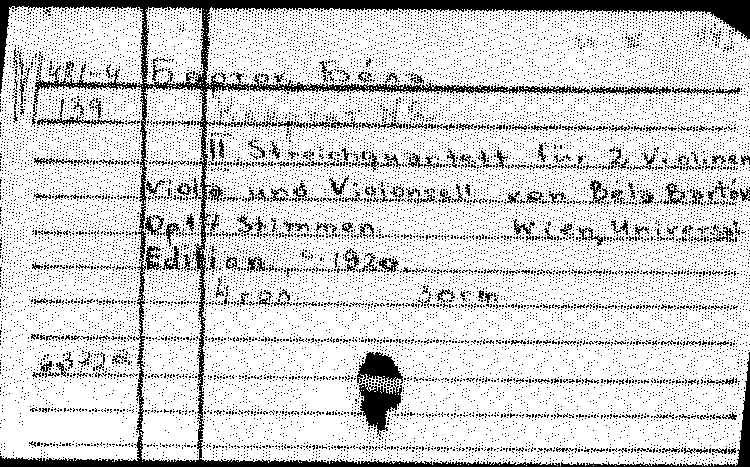 М 481-4 Барток, Бéла.
139
II Streichquartett für 2 Violinen
Viola und Violonsell von Bela Bartók
Op17 Stimmen. Wien, Universal
Edition, c. 1920.
30cm